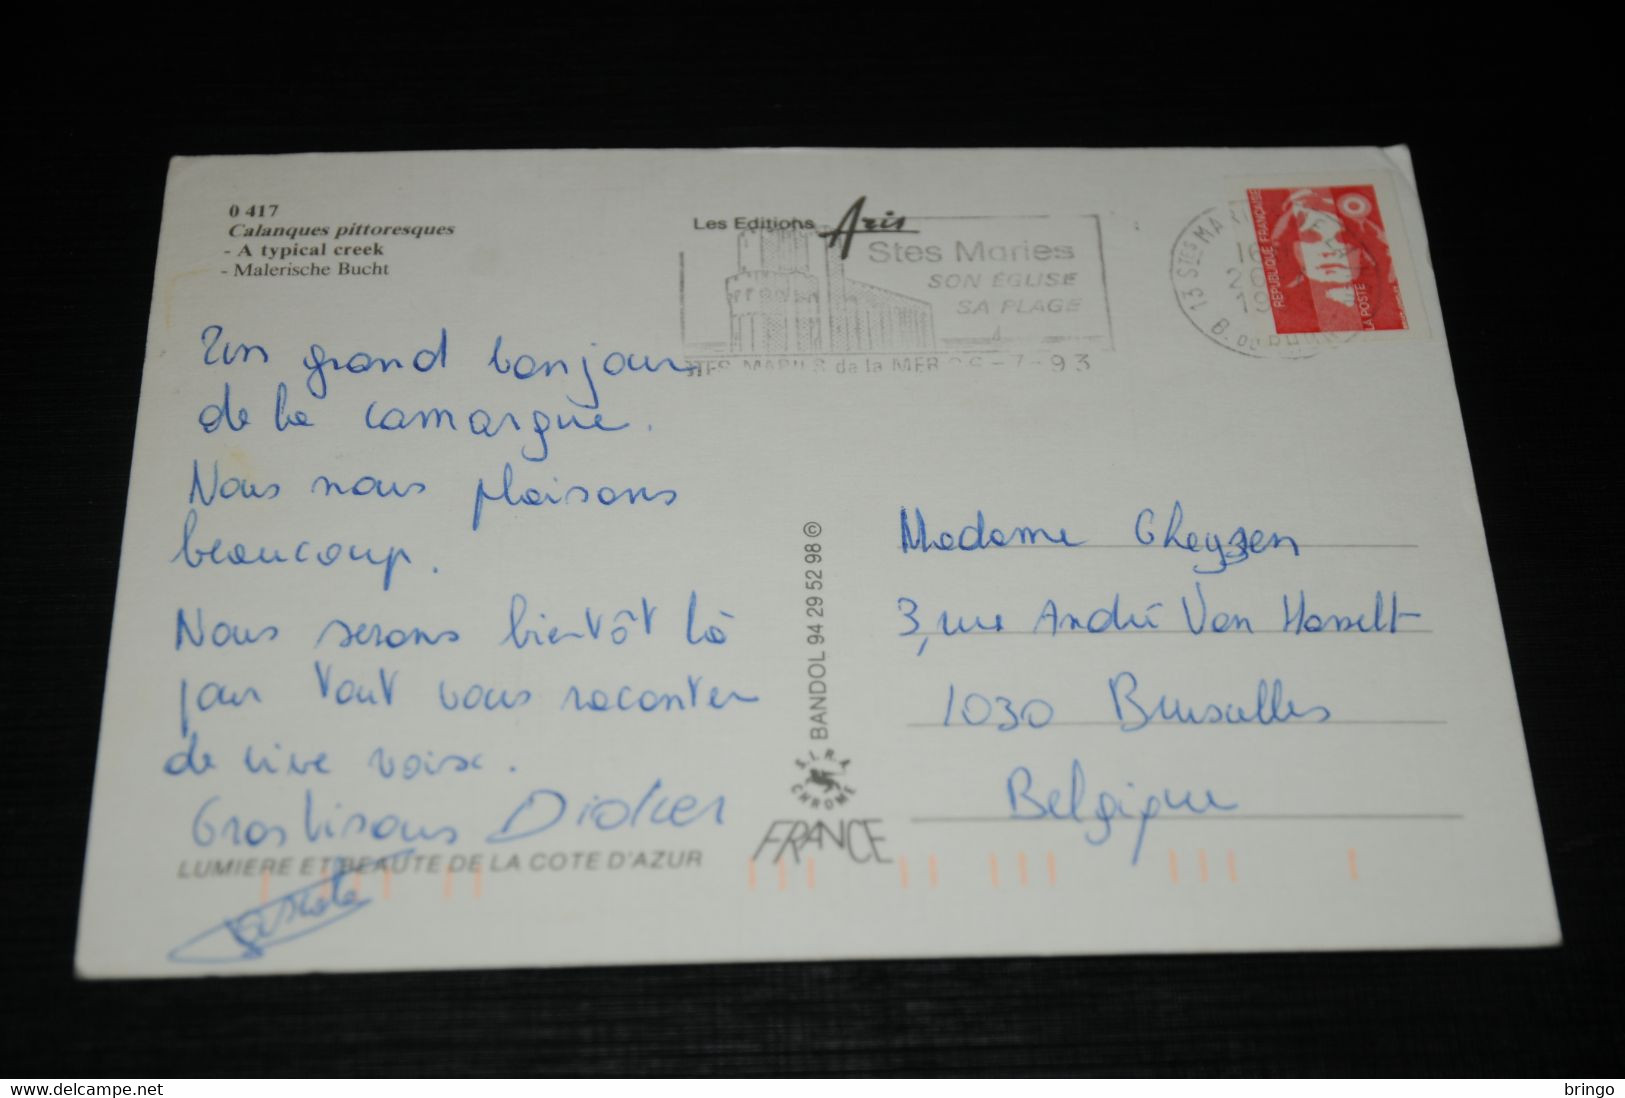 0 417
Calanques pittoresques
- A typical creek
- Malerische Bucht
Les Editions Aris
Stes Maries
SON ÉGLISE
SA PLAGE
STES MARIES de la MER -7-93
13 STES MA
B. DU RHONE
REPUBLIQUE FRANÇAISE
LA POSTE
Un grand bonjour
de la camargue.
Nous nous plaisons
beaucoup.
Nous serons bientôt là
pour tout vous raconter
de vive voix.
Gros bisous Didier
LUMIERE ET BEAUTE DE LA COTE D'AZUR
BANDOL 94 29 52 98 ©
S.I.R.A.
CHROME
FRANCE
Madame Gheyzen
3, rue André Van Hasselt
1030 Bruxelles
Belgique
bringo